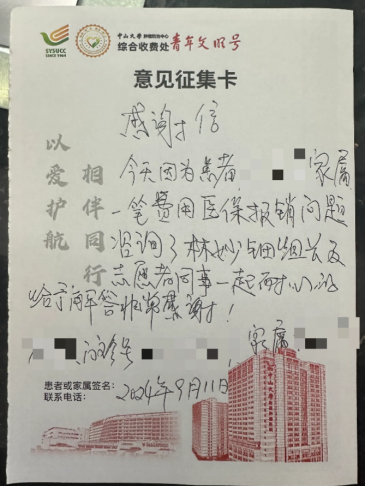 SYSUCC
SINCE 1964
中山大学肿瘤防治中心
综合收费处青年文明号
意见征集卡
以爱护航
相伴同行
感谢信
今天因为患者 家属
一笔费用医保报销问题
咨询了林妙钿组长及
志愿者同事一起耐心的
给予解答非常感谢!
家属
患者或家属签名:
联系电话:
2024年9月11日